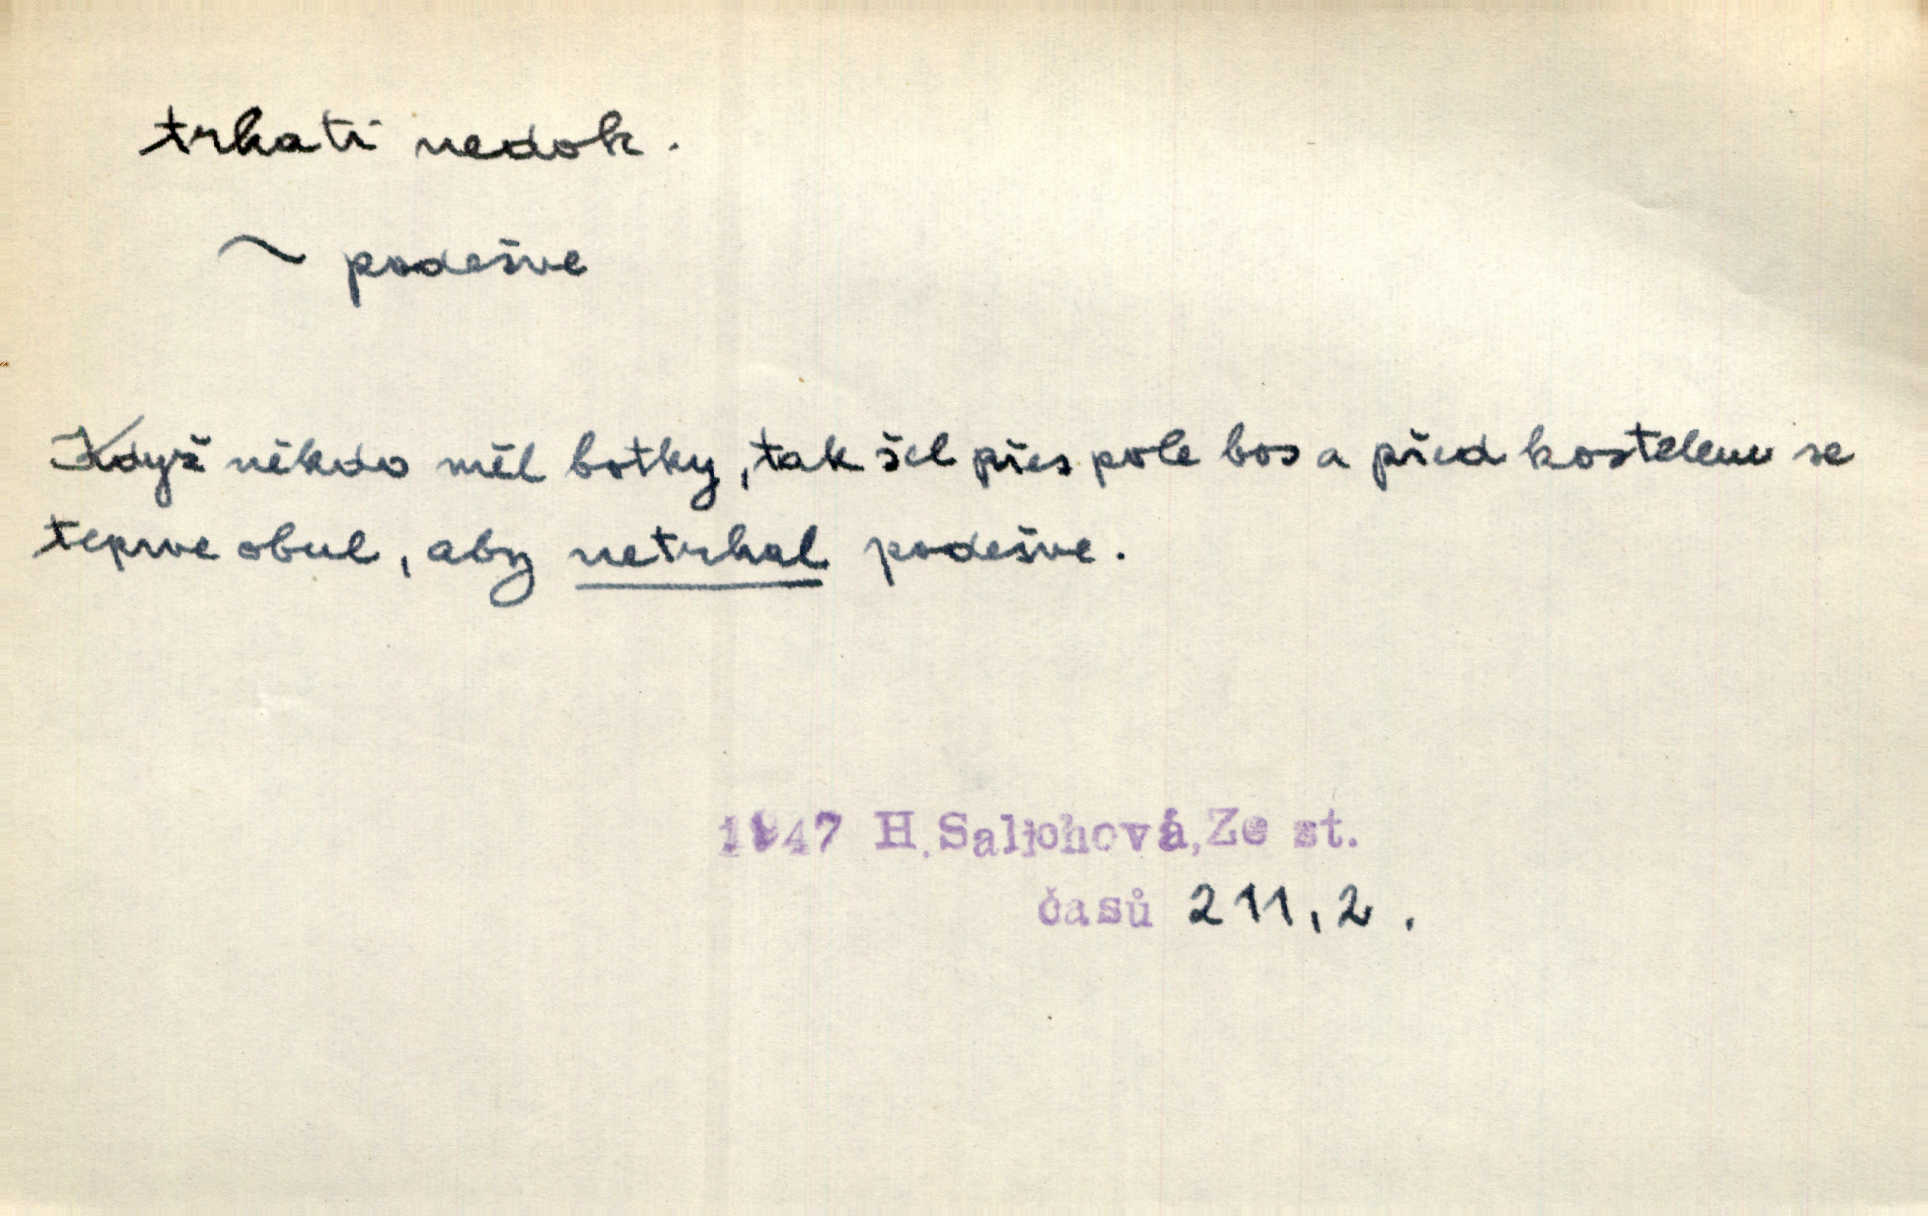 trhati nedok.
~ podešve
Když někdo měl botky, tak šel přes pole bos a před kostelem se
teprve obul, aby netrhal podešve.
1947 H. Salichová, Ze st.
časů 211, 2.